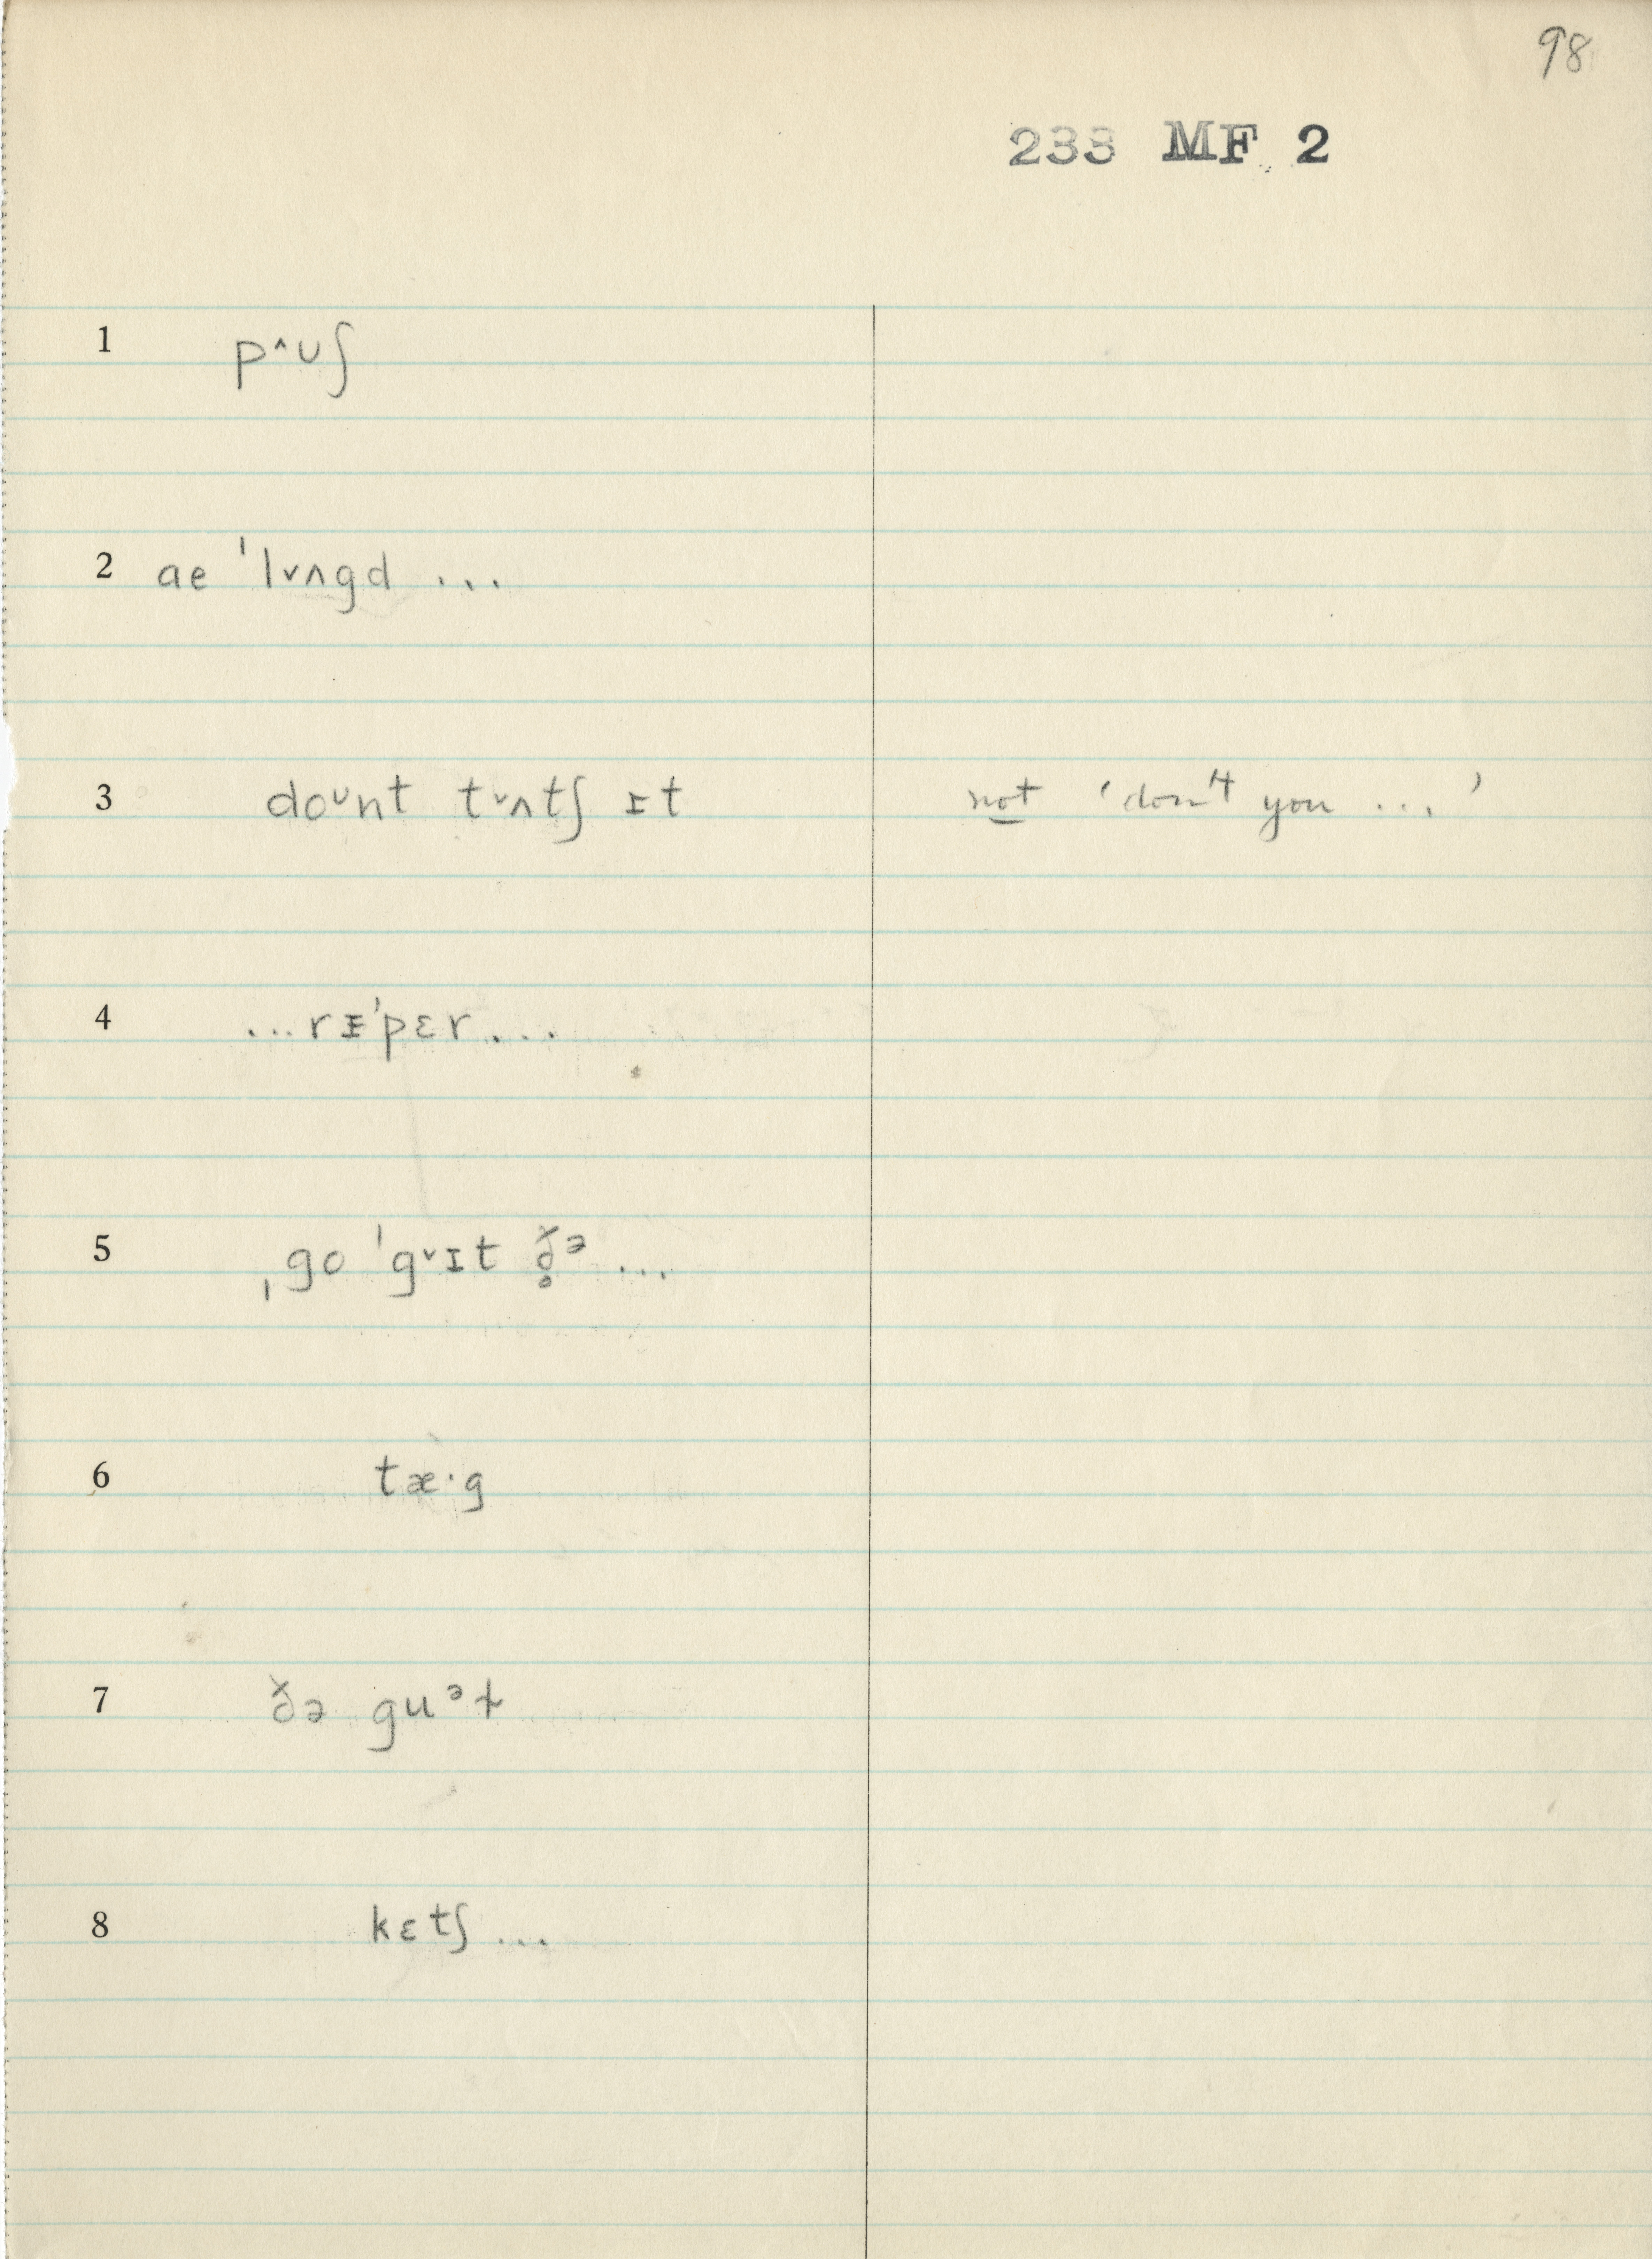 98
233 MF 2
1 p^ʊʃ
2 ae ˈlᵛʌgd ...
3 doᶷnt tᵛʌtʃ ɪt not ‘don't you ...’
4 ...rᵻˈpɛr...
5 ˌgo ˈgᵛɪt ð̥ᵊ ...
6 tæ·g
7 ðə guᵊɫ
8 kɛtʃ ...